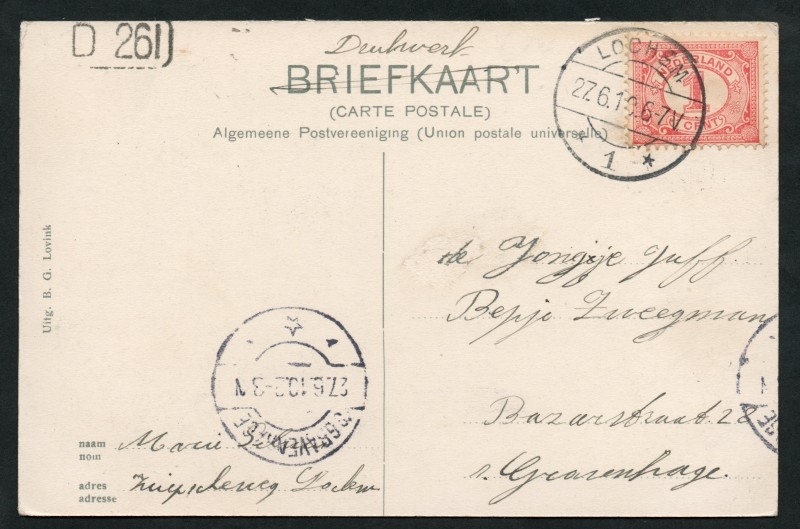 D 261
Drukwerk
BRIEFKAART
(CARTE POSTALE)
Algemeene Postvereeniging (Union postale universelle)
LOCHEM
27.6.10.6-7V
1
NEDERLAND
1
CENT
Uitg. B. G. Lovink
de Jongeje Juff.
Bepje Zweegman
Bazarstraat 28
s. Gravenhage.
27.6.10.2-3 N
'S GRAVENHAGE
naam
nom
Marie
adres
adresse
Lochem